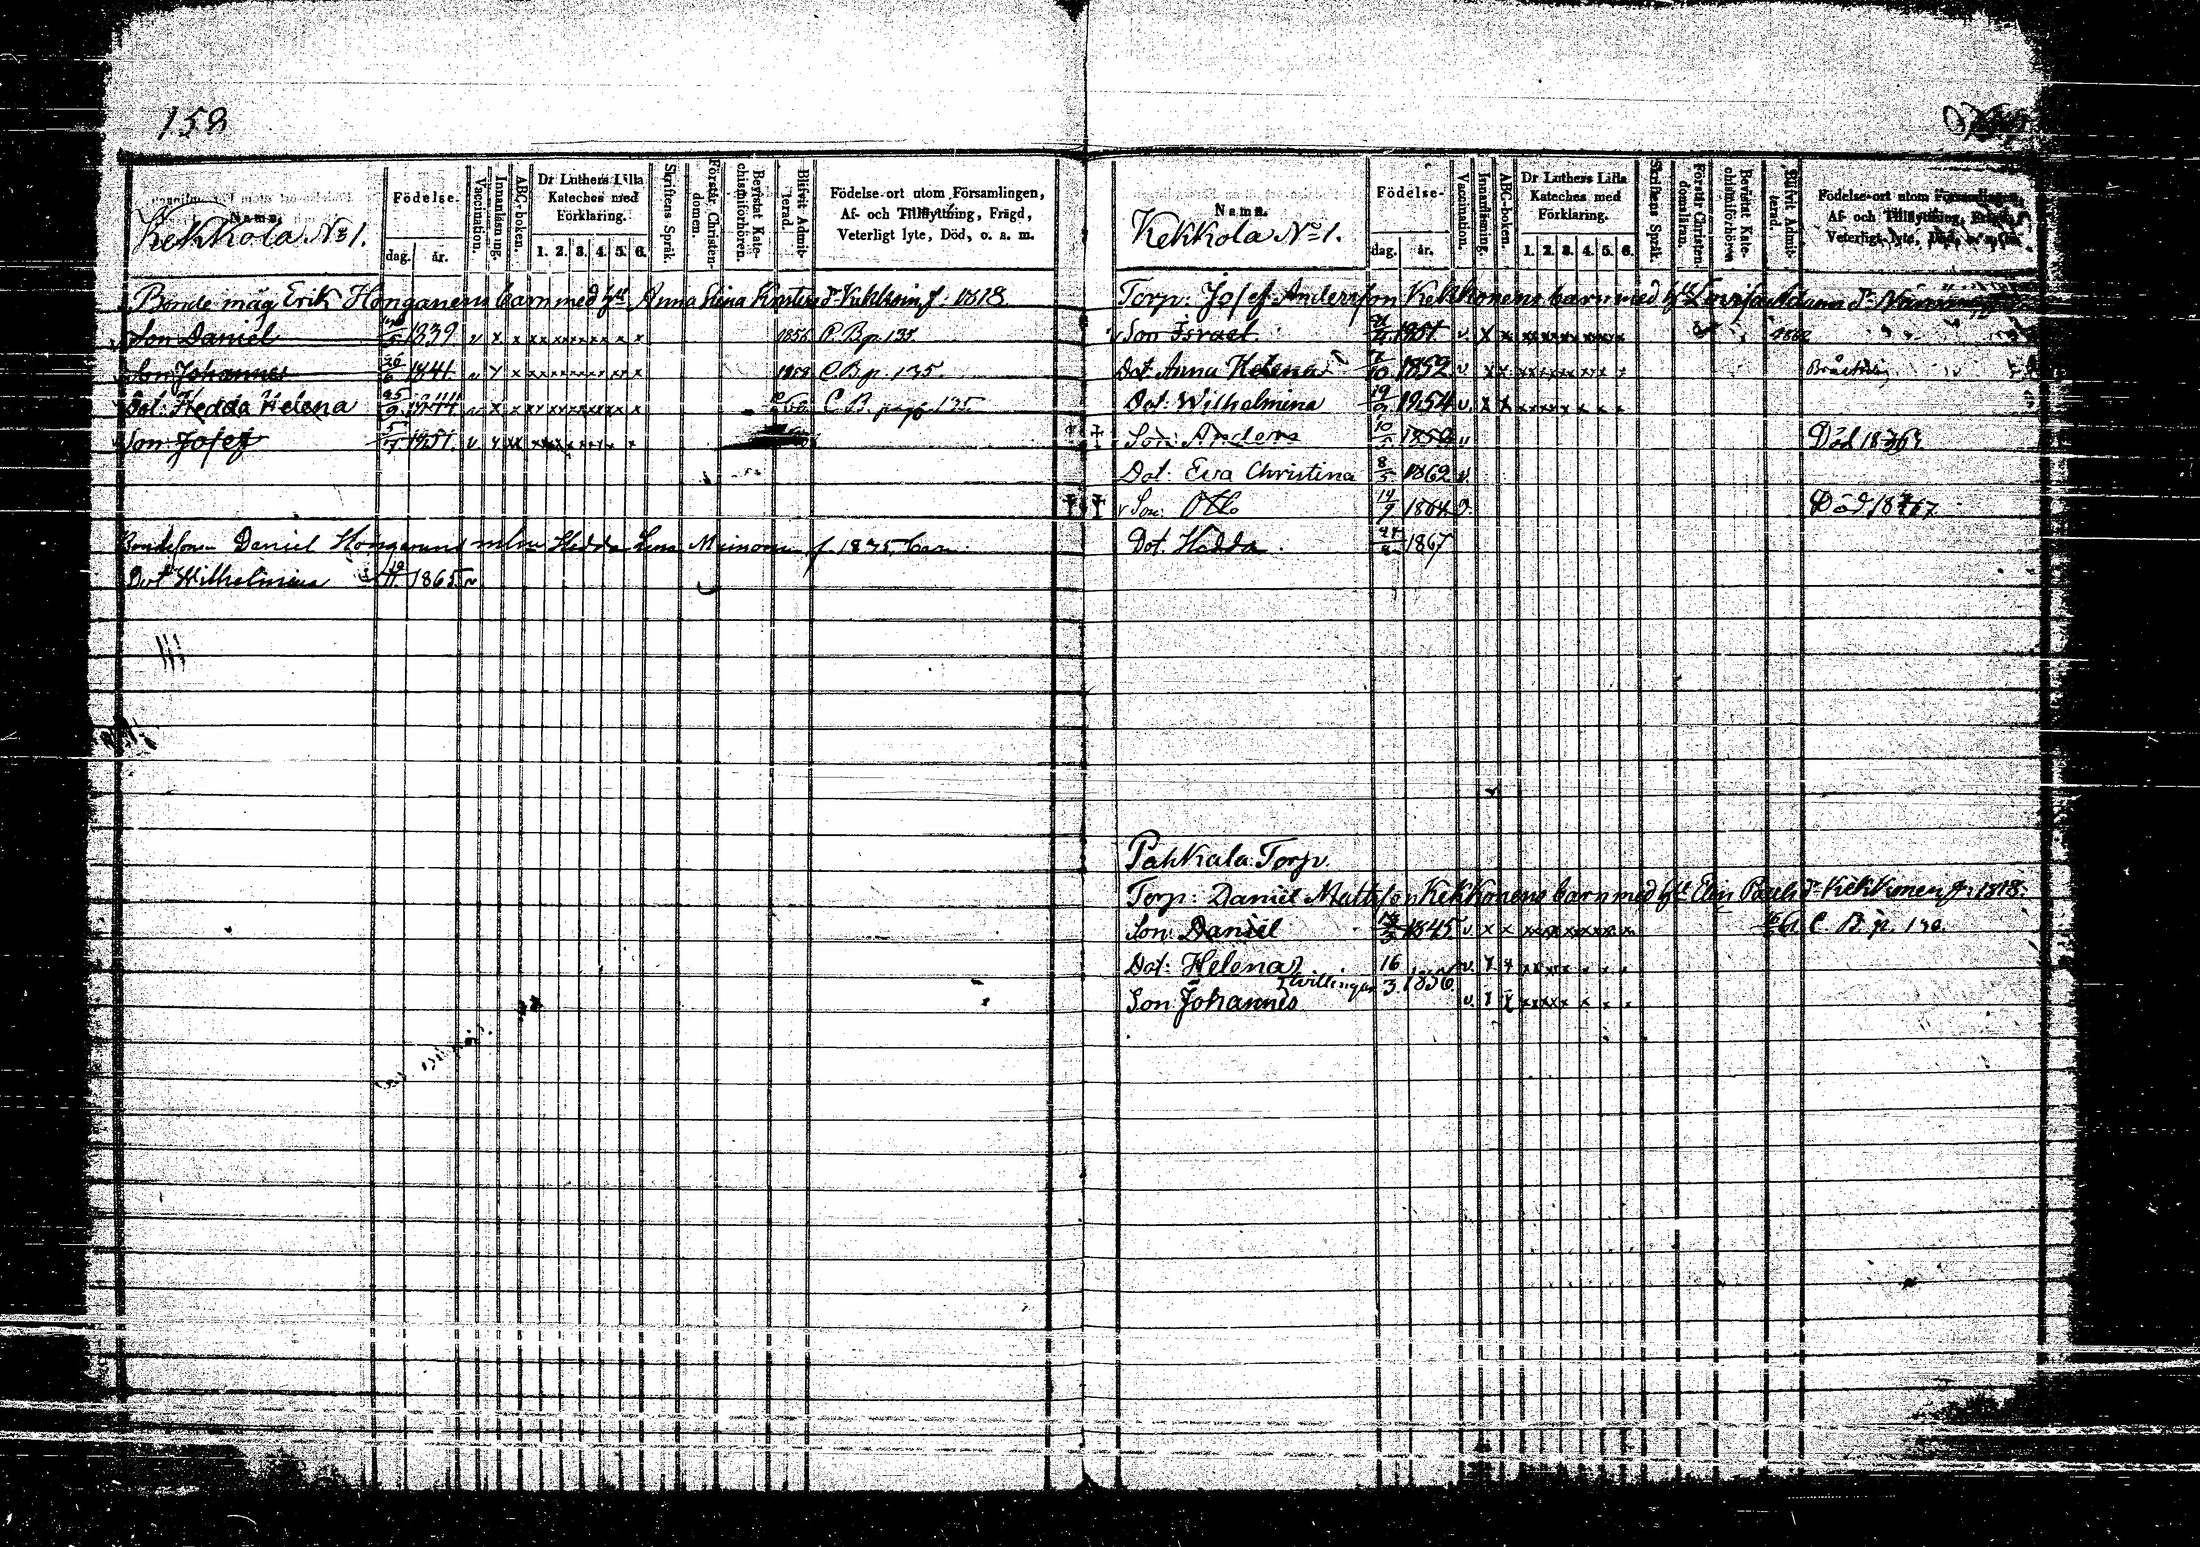 152
Namn.
Kekkola No 1.
Födelse.
dag. år.
Vaccination.
Innanläsning.
ABC-boken.
Dr Luthers Lilla Kateches med Förklaring.
1. 2. 3. 4. 5. 6.
Skriftens Språk.
Förstår Christendomen.
Bevistat Katechismiförhören.
Blifvit Admitterad.
Födelse-ort utom Församlingen,
Af- och Tillflyttning, Frägd,
Veterligt lyte, Död, o. s. m.
Bonde måg Erik Honganens barn med hu Anna Stina f. 1818
Son Daniel 1839 v x x x x x x x x x x 1856 C. B. p. 135.
Son Johannes 26/6 1841. v x x x x x x x x x x C. B. p. 135.
Dot: Hedda Helena 25/9 1844 v x x x x x x x x x x 60 C. B. pag. 135.
Son Josef 5/7 1851. v. x x x x x x x x x x
Daniel Hedda Lena f. 1835, barn
Dot Wilhelmina 1865. v
Namn.
Kekkola No 1.
Födelse-
dag. år.
Vaccination.
Innanläsning.
ABC-boken.
Dr Luthers Lilla Kateches med Förklaring.
1. 2. 3. 4. 5. 6.
Skriftens Språk.
Förstår Christendomsläran.
Bevistat Katechismiförhören
Blifvit Admitterad.
Födelse-ort utom Församlingen,
Af- och Tillflyttning,
Veterligt lyte, Död,
Torp: Josef Andersson Kekkonens barn med hu Lovisa Adams Dr
Son Israel 1851 v. x x x x x x x x 1862
Dot Anna Helena 7/10 1852 v x x x x x x x x
Dot: Wilhelmina 19/9 1854 v. x x x x x x x x x
Son: Anders 10/5 v Död
Dot: Eva Christina 8/5 1862 v.
Son: Otto 14/9 1864 v. Död 1867.
Dot. Hedda 1867
Pahkala Torp.
Torp: Daniel Mattsson Kekkonens barn med hu Elin Pauls Dr Kekkonen f. 1818.
Son: Daniel 1845 v. x x x x x x x x x 61 C. B. p. 130.
Dot: Helena 16 v. x x x x x x x x x
Tvillingar 3. 1856
Son Johannes v. x x x x x x x x x